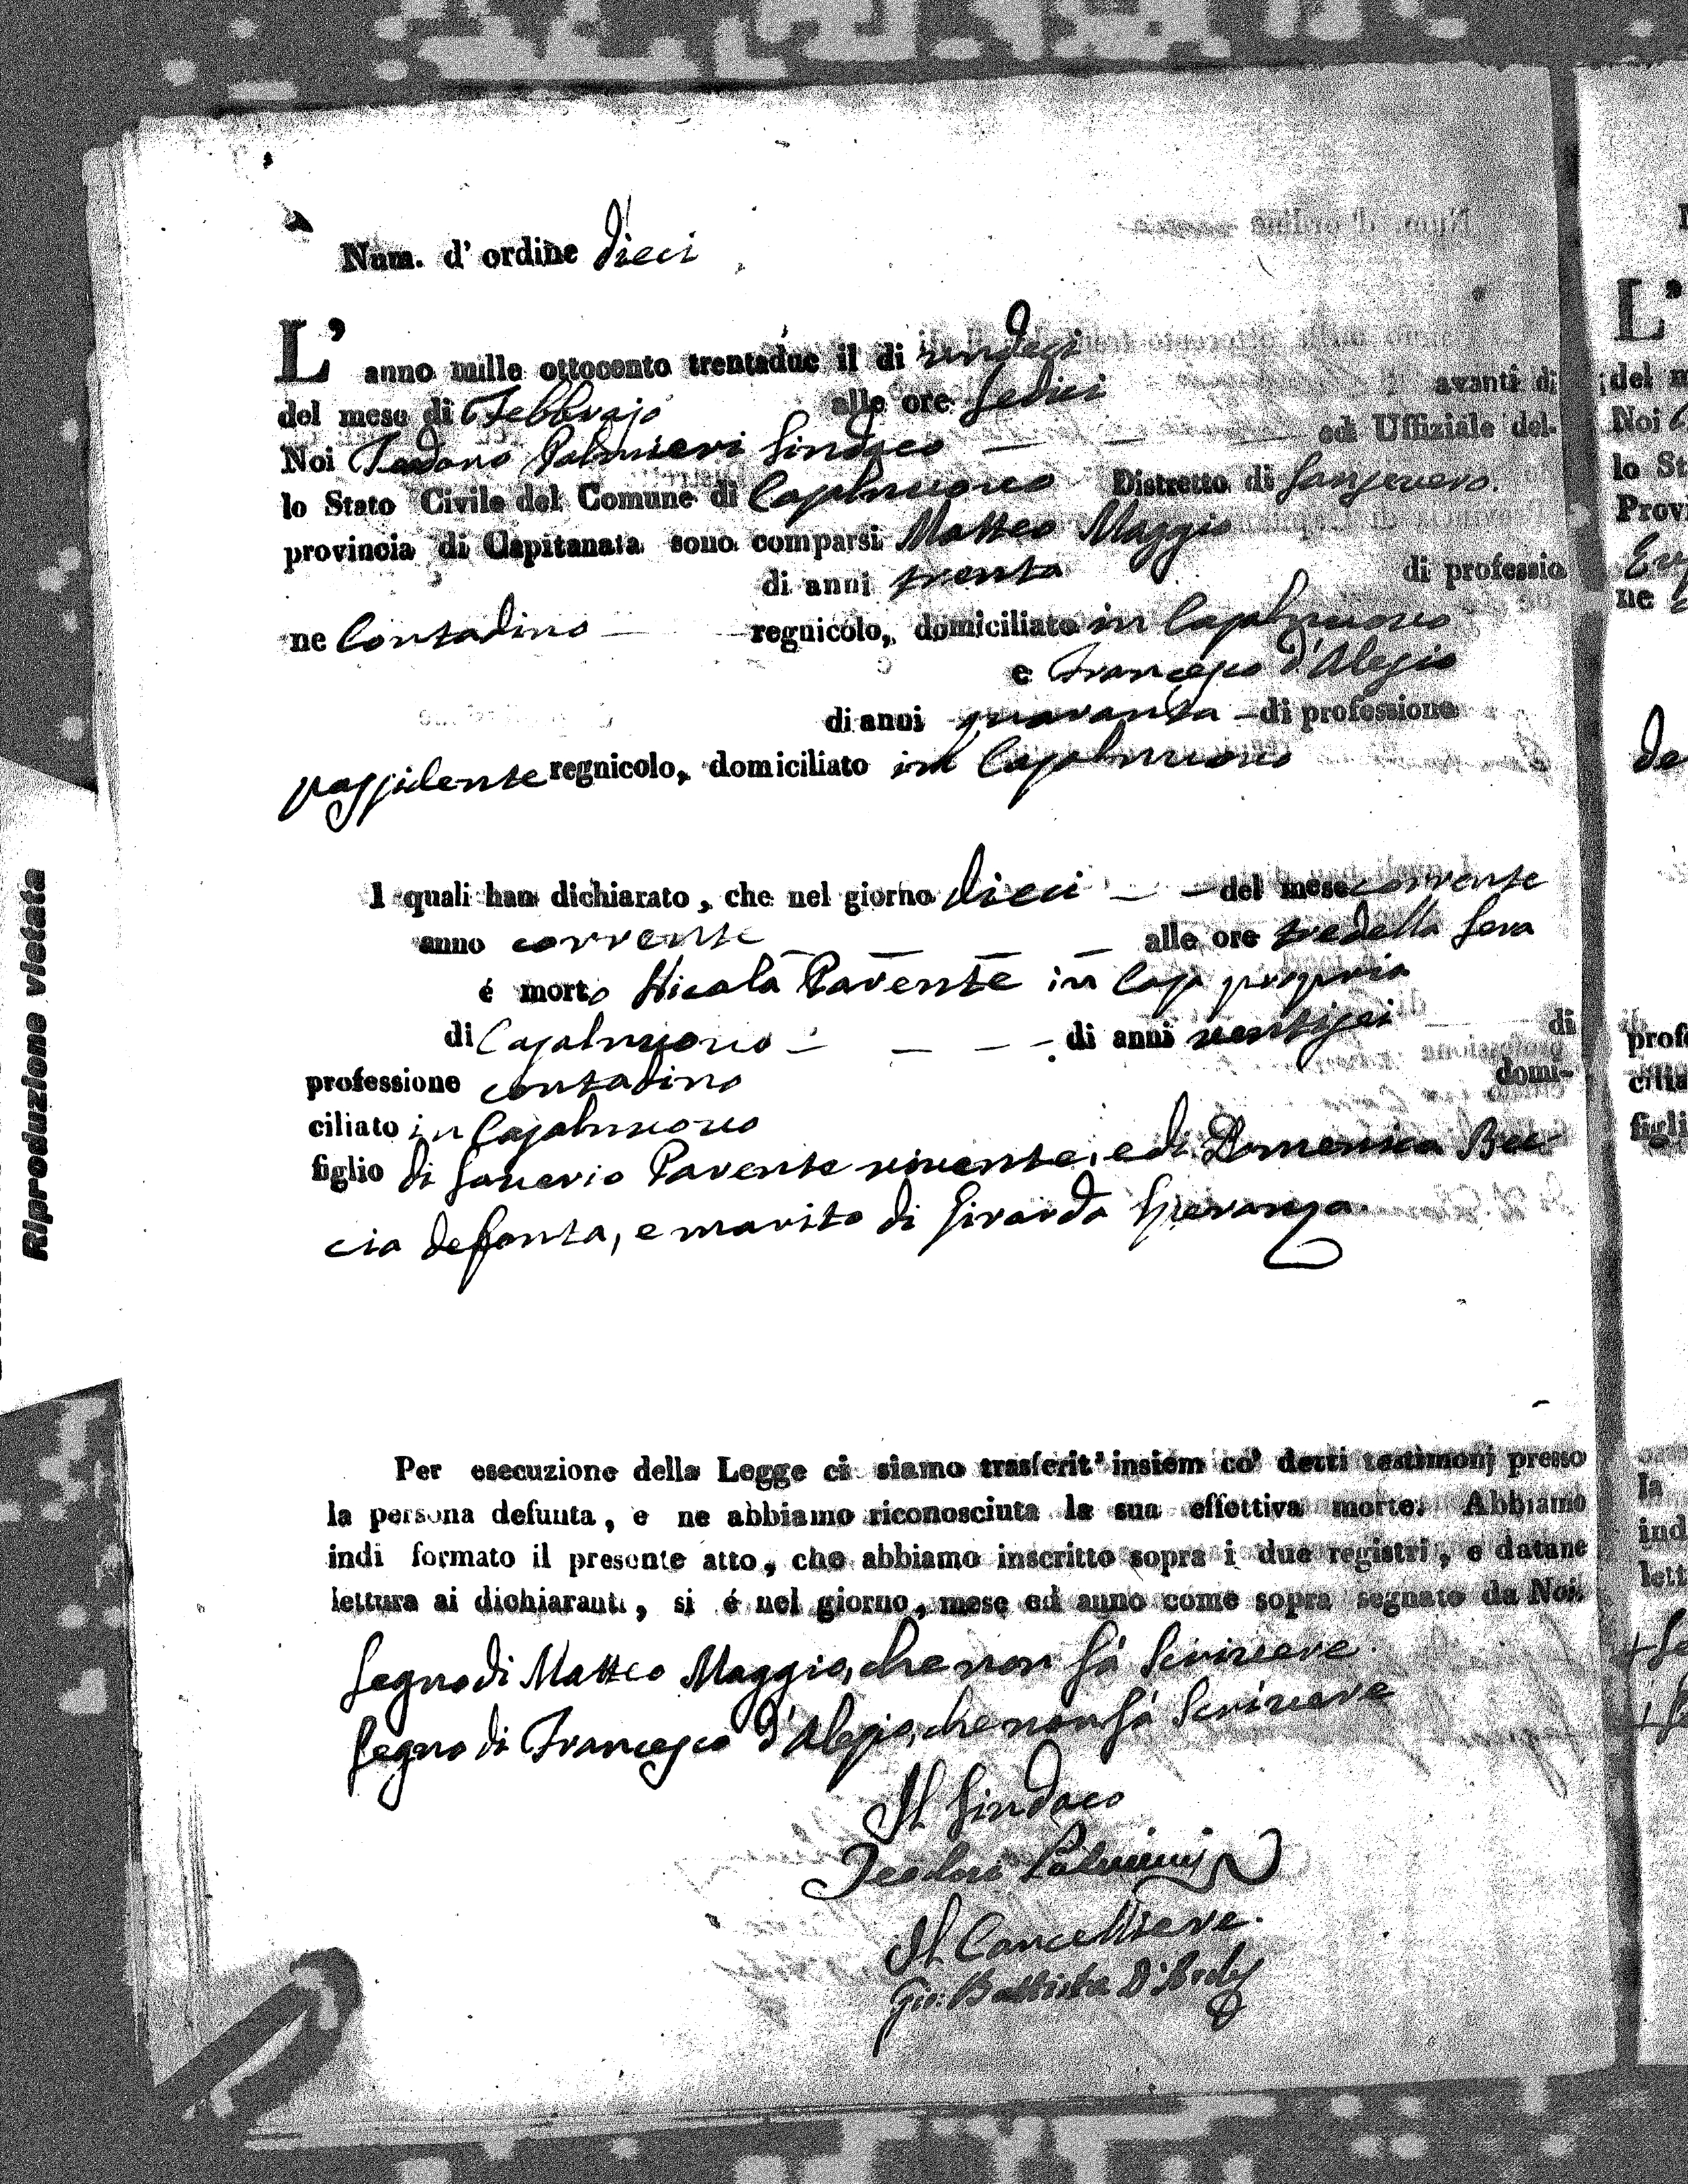 Num. d' ordine dieci
L' anno mille ottocento trentadue il di undeci
del mese di Febbrajo alle ore sedici avanti di
Noi Teodoro Palmieri Sindaco ed Uffiziale del-
lo Stato Civile del Comune di Casalnuovo Distretto di Sansevero.
provincia di Capitanata sono comparsi Matteo Maggio
di anni trenta di professio
ne Contadino regnicolo, domiciliato in Casalnuovo
e Francesco d'Alesio
di anni quaranta di professione
possidente regnicolo, domiciliato in Casalnuovo
I quali han dichiarato, che nel giorno dieci del mese corrente
anno corrente alle ore tre della sera
é morto Nicola Parente in Casa propria
di Casalnuovo di anni ventisei di
professione contadino domi-
ciliato in Casalnuovo
figlio di Saverio Parente vivente, e di Domenica Buc-
cia defonta, e marito di Girarda Speranza.
Per esecuzione della Legge ci siamo trasferit' insiem co' detti testimonj presso
la persona defunta, e ne abbiamo riconosciuta la sua effettiva morte. Abbiamo
indi formato il presente atto, che abbiamo inscritto sopra i due registri, e datane
lettura ai dichiaranti, si é nel giorno, mese ed anno come sopra segnato da Noi.
Segno di Matteo Maggio, che non sà scrivere.
Segno di Francesco d'Alesio, che non sà scrivere
Il Sindaco
Teodoro Palmieri
Il Cancelliere.
Gio: Battista
Riproduzione vietata